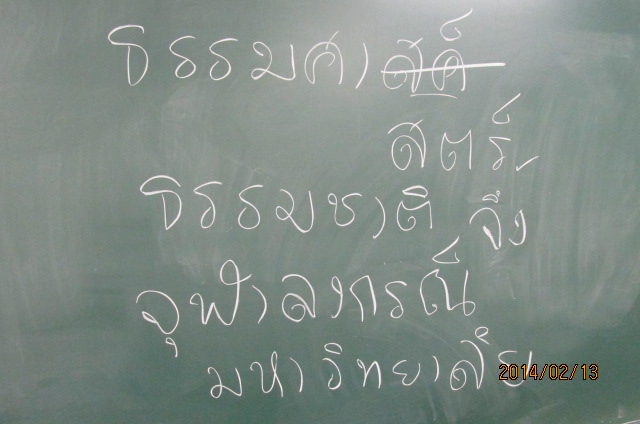 ธรรมศา สต์
สตร์
ธรรมชาติ จึง
จุฬาลงกรณ์
มหาวิทยาลัย
2014/02/13